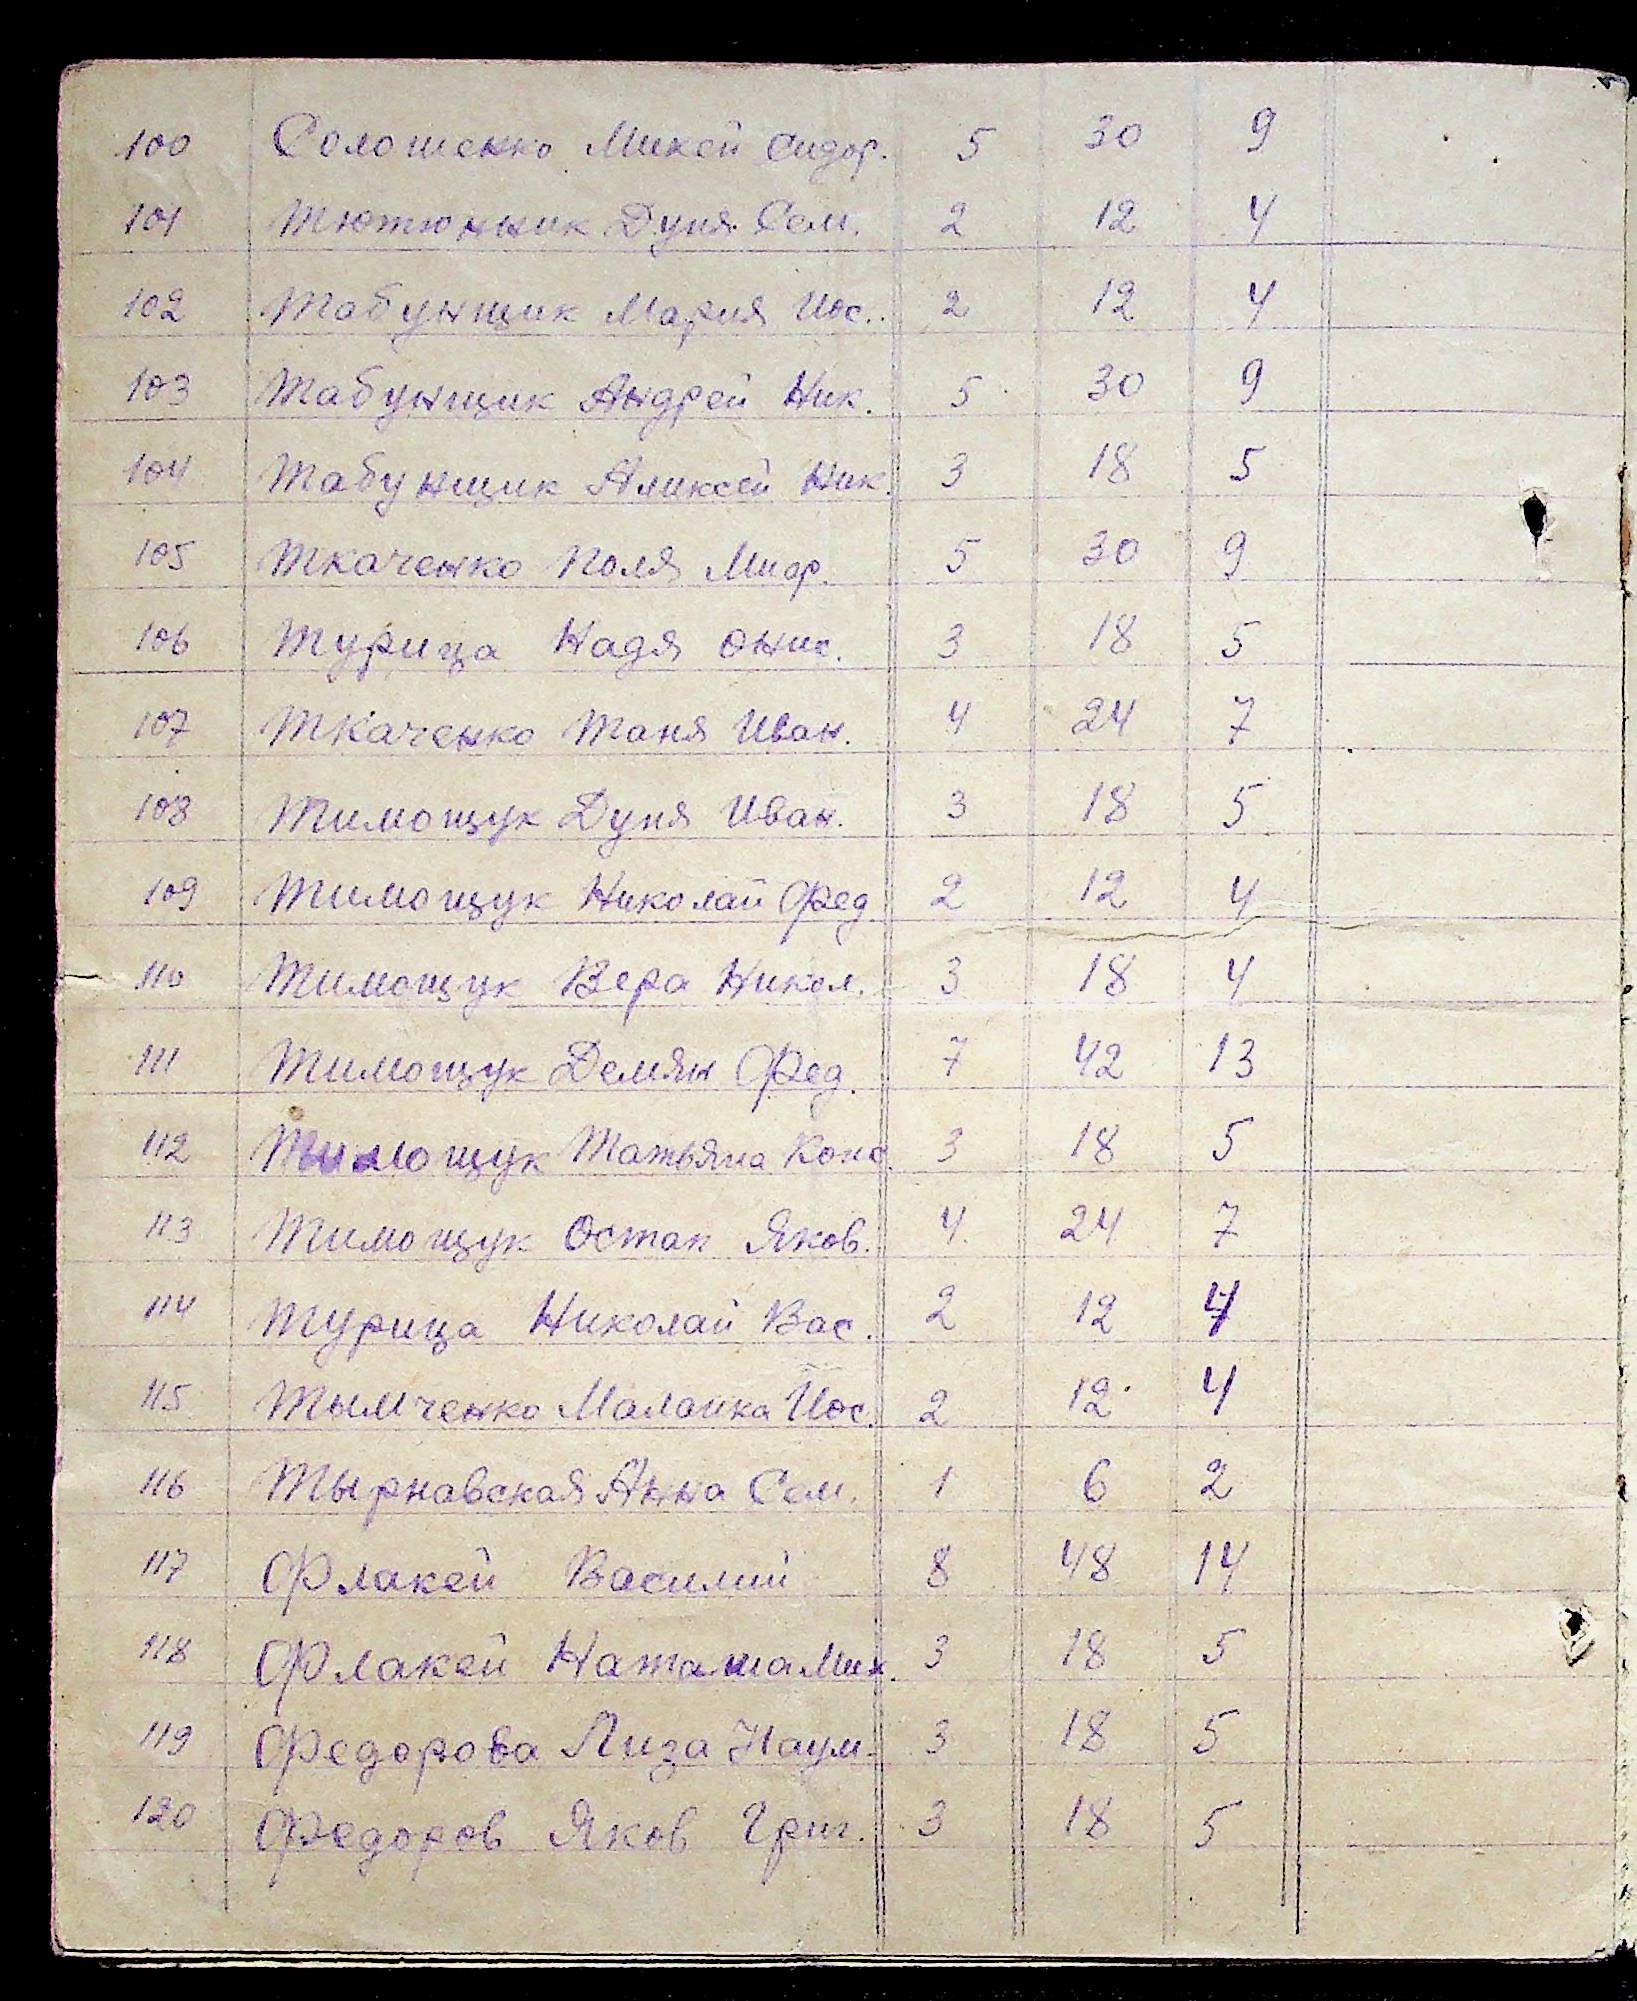 100 Солошенко Микей Сидор. 5 30 9
101 Тютюнник Дуня Сем. 2 12 4
102 Табунщик Мария Иос. 2 12 4
103 Табунщик Андрей Ник. 5 30 9
104 Табунщик Аликсей Ник. 3 18 5
105 Ткаченко Поля 5 30 9
106 Турица Надя Онис. 3 18 5
107 Ткаченко Таня Иван. 4 24 7
108 Тимощук Дуня Иван. 3 18 5
109 Тимощук Николай Фед 2 12 4
110 Тимощук Вера Никол. 3 18 4
111 Тимощук Демян Фед. 7 42 13
112 Тимощук Татьяна Конс. 3 18 5
113 Тимощук Остап Яков. 4 24 7
114 Турица Николай Вас. 2 12 4
115 Тымченко Маланка Иос. 2 12 4
116 Тырнавская Анна Сем. 1 6 2
117 Флакей Василий 8 48 14
118 Флакей Наташа Мих. 3 18 5
119 Федорова Лиза Наум. 3 18 5
120 Федоров Яков Григ. 3 18 5